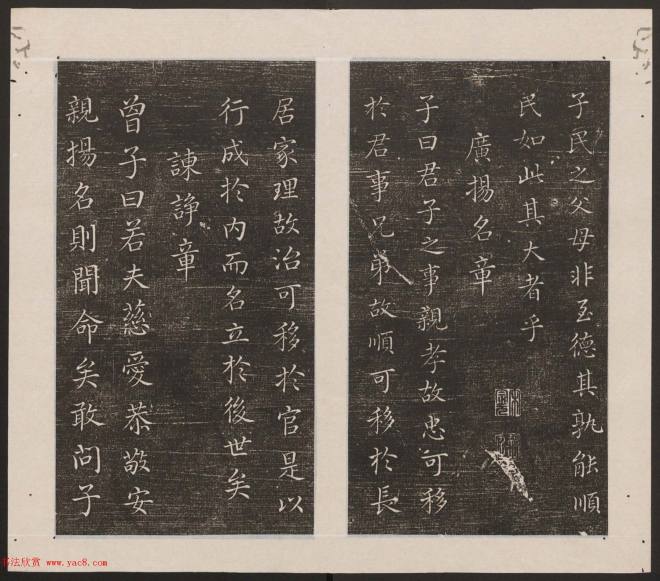 子民之父母非至德其孰能順
民如此其大者乎
廣揚名章
子曰君子之事親孝故忠可移
於君事兄弟故順可移於長
居家理故治可移於官是以
行成於内而名立於後世矣
諫諍章
曾子曰若夫慈愛恭敬安
親揚名則聞命矣敢問子
书法欣赏 www.yac8.com